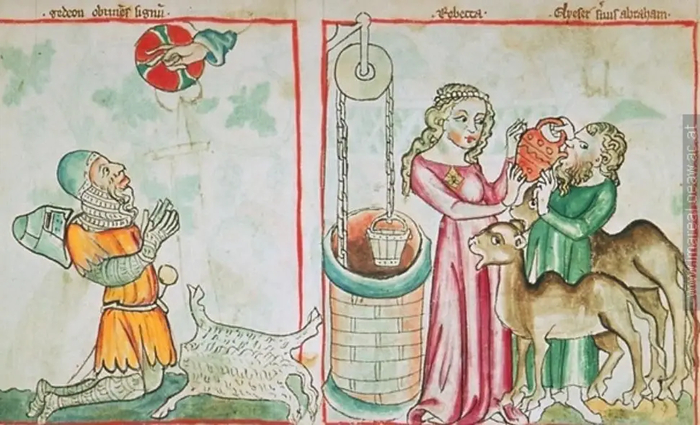 · gedeon obtinēs signū ·
· Rebecca ·
Elyeser abraham ·
www.imareal.oeaw.ac.at